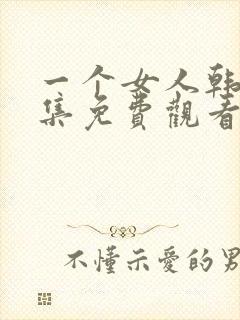 一个女人韩
集免费觀看
不懂示愛的男